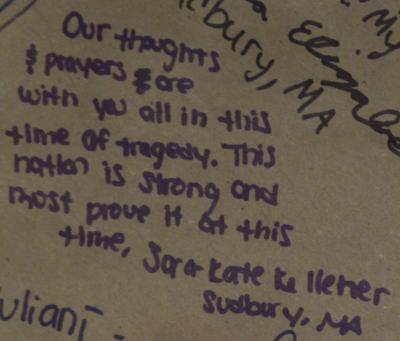 My
lbury, MA
Our thoughts
& prayers & are
with you all in this
time of tragedy. This
nation is strong and
most prove it at this
time, Sara & Kate Kelleher
Sudbury, MA
uliani